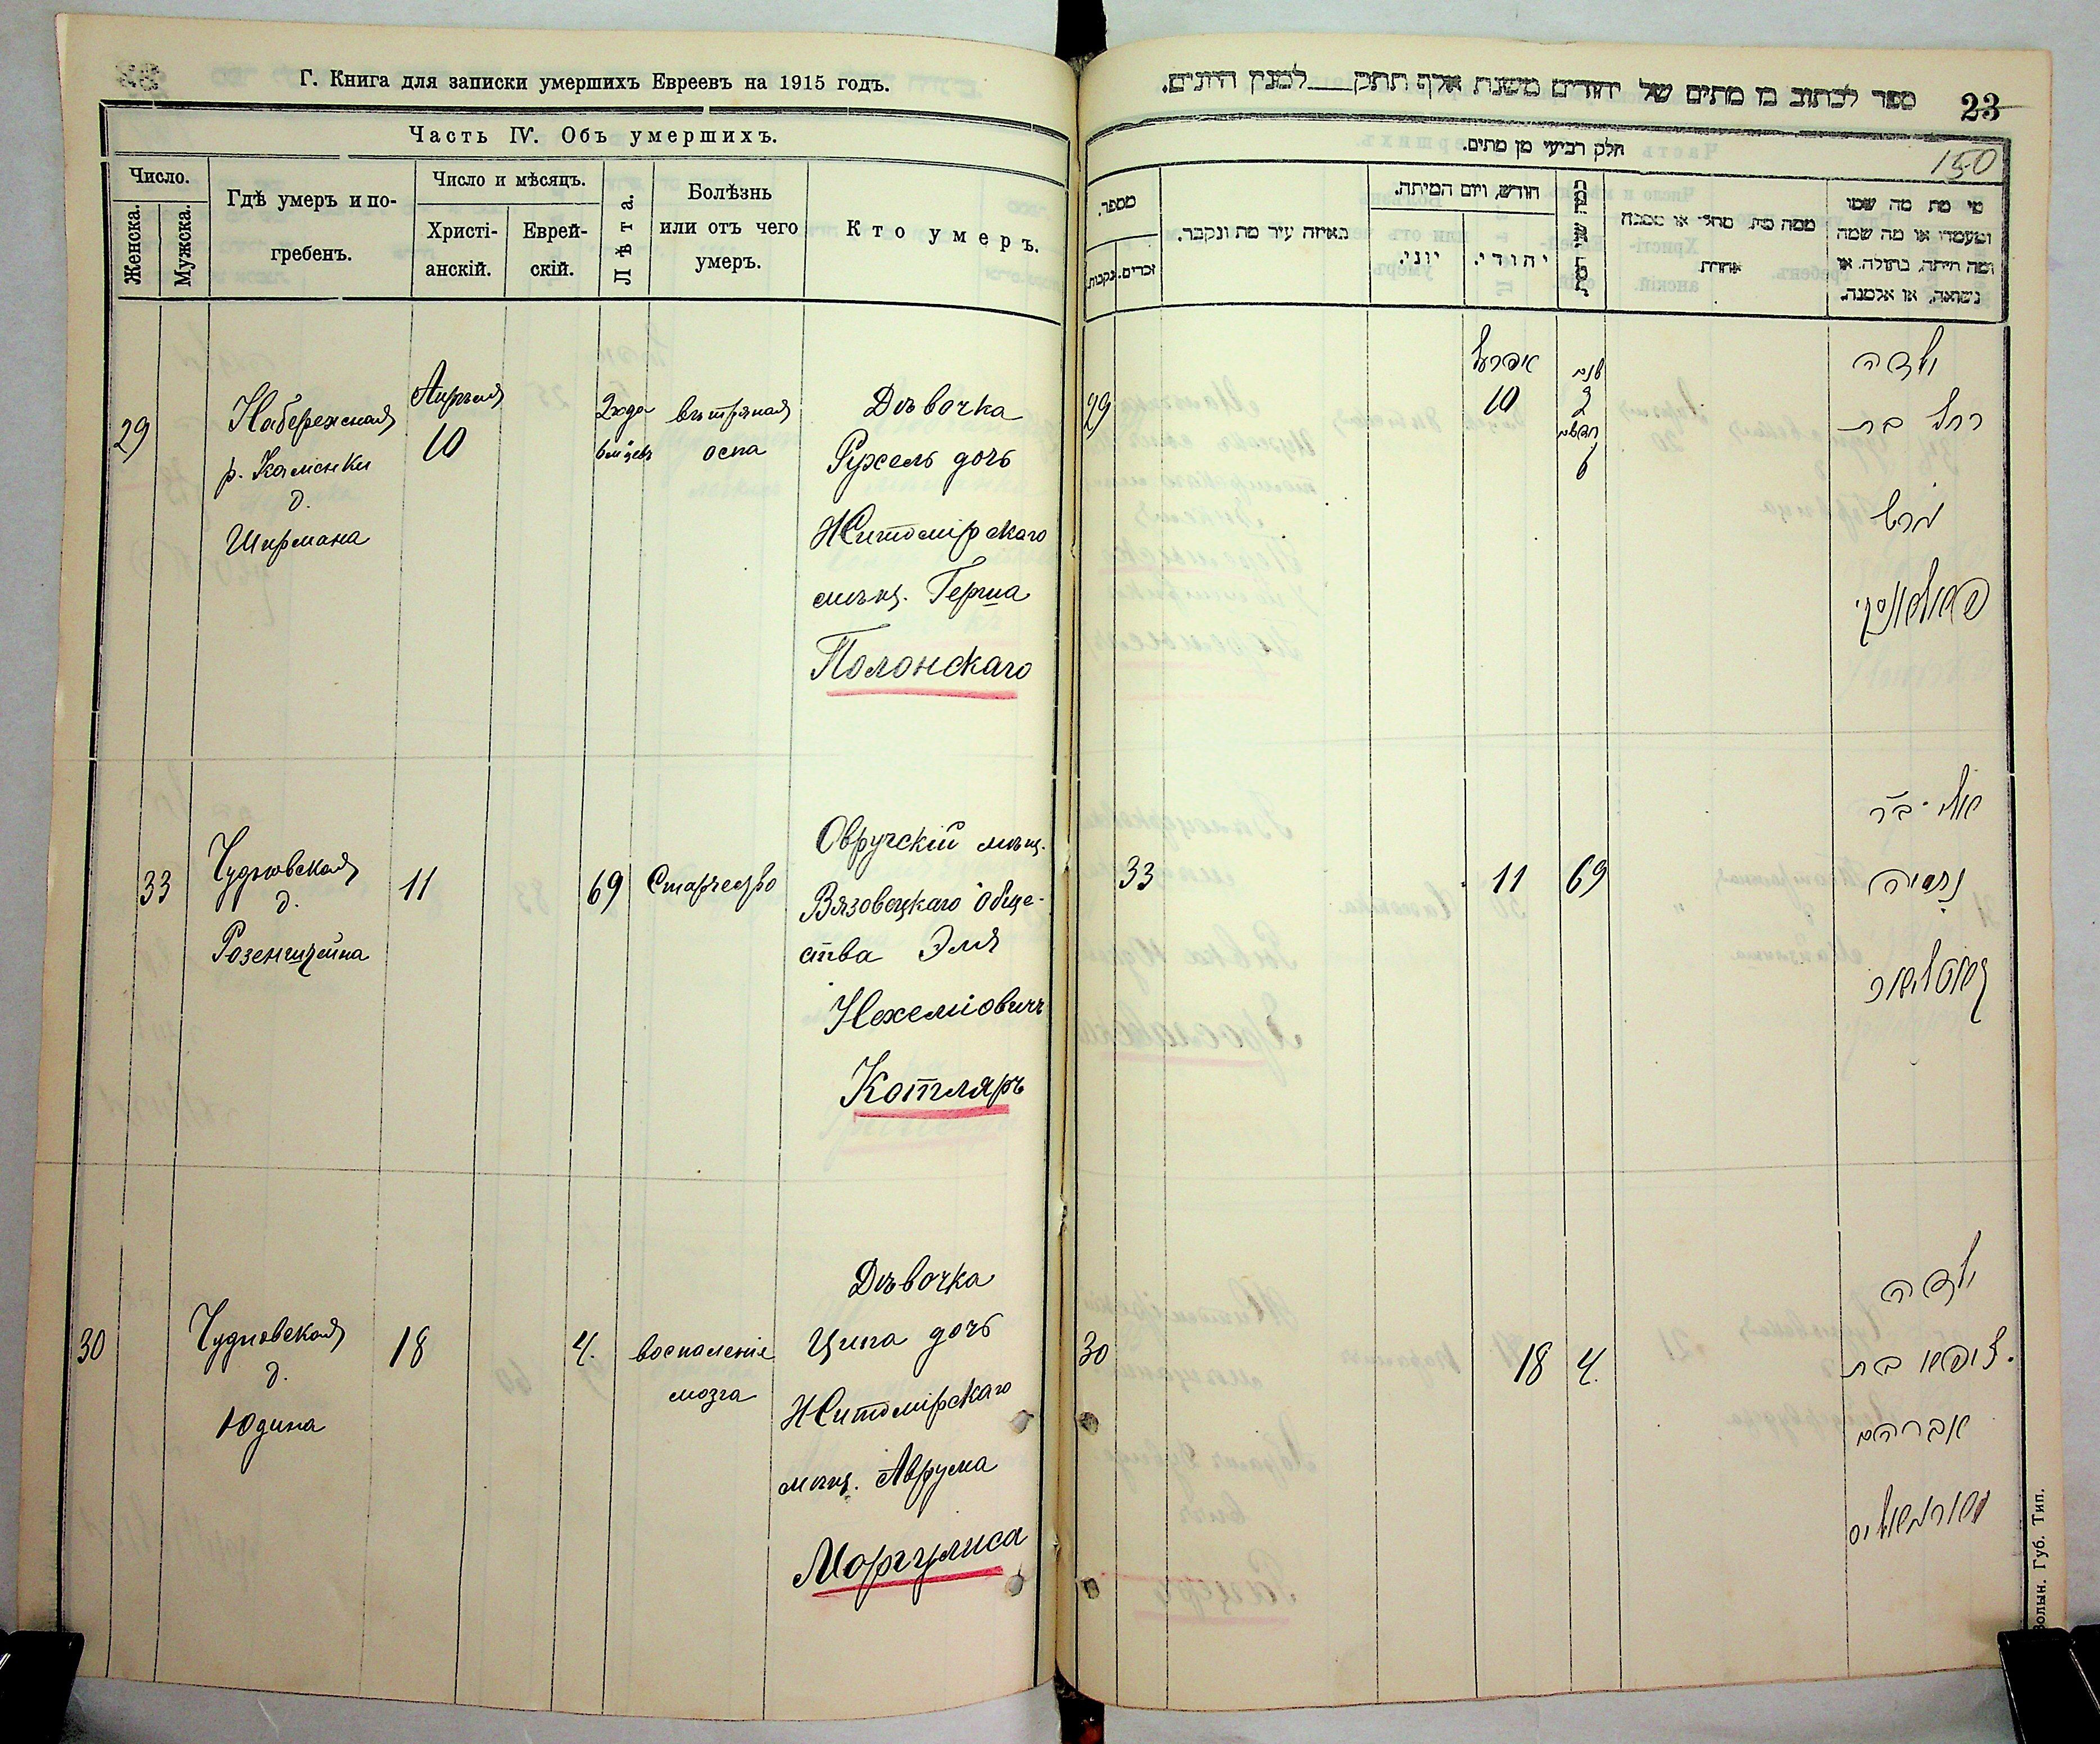 Г. Книга для записки умершихъ Евреевъ на 1915 годъ.
Часть IV. Объ умершихъ.
Число.
Женска.
Мужска.
Гдѣ умеръ и по-
гребенъ.
Число и мѣсяцъ.
Христі-
анскій.
Еврей-
скій.
Лѣта.
Болѣзнь
или отъ чего
умеръ.
Кто умеръ.
29
Набережная
р. Каменки
д.
Ширмана
Апрѣля
10
2 года
6 м цевъ
вѣтряная
оспа
Дѣвочка
Рухель дочь
Житомірскаго
мѣщ. Герша
Полонскаго
33
Чудновская
д.
Розенштейна
11
69
Старчество
Овручскій мѣщ.
Вязовецкаго Обще-
ства Эля
Нехеміовичъ
Котляръ
30
Чудновская
д.
Юдина
18
4.
воспаленіе
мозга
Дѣвочка
Ципа дочь
Житомірскаго
мѣщ. Аврума
Моргулиса
ספר לכתוב בו מתים של יהודים משנת אלף תתק למנין היונים.
23
חלק רביעי מן מתים.
150
מספר.
נקבות.
זכרים.
באיזה עיר מת ונקבר.
חודש, ויום המיתה.
יוני.
יהודי.
ממה מת מחלי או מסבה
אחרת
מי מת מה שמו
ומעמדו או מה שמה
ומה היתה, בתולה, או
נשואה, או אלמנה.
29
אפריל
10
שנים
2
חדשים
6
ילדה
רחל בת
הרש
פאלאנסקי
33
11
69
אלי ב״ר
נחמיה
קאטליאר
30
18
4.
ילדה
ציפא בת
אברהם
מארגאליס
Волын. Губ. Тип.